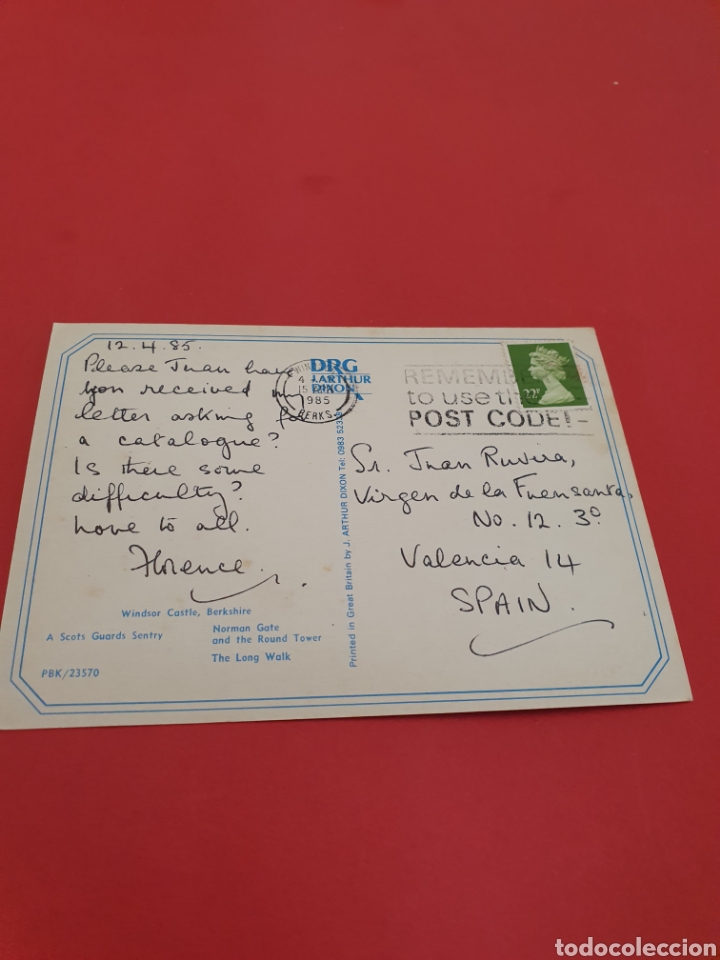 12.4.85.
Please Juan have
you received my
letter asking for
a catalogue?
Is there some
difficulty?
Love to all.
Florence.
Windsor Castle, Berkshire
A Scots Guards Sentry
Norman Gate
and the Round Tower
The Long Walk
PBK/23570
DRG
J.ARTHUR
DIXON
1985
BERKS
Printed in Great Britain by J. ARTHUR DIXON Tel: 0983
REMEMBER
to use the
POST CODE!
22P
Sr. Juan Ruvira,
Virgen de la Fuensanta,
No. 12. 3º
Valencia 14
SPAIN.
todocoleccion